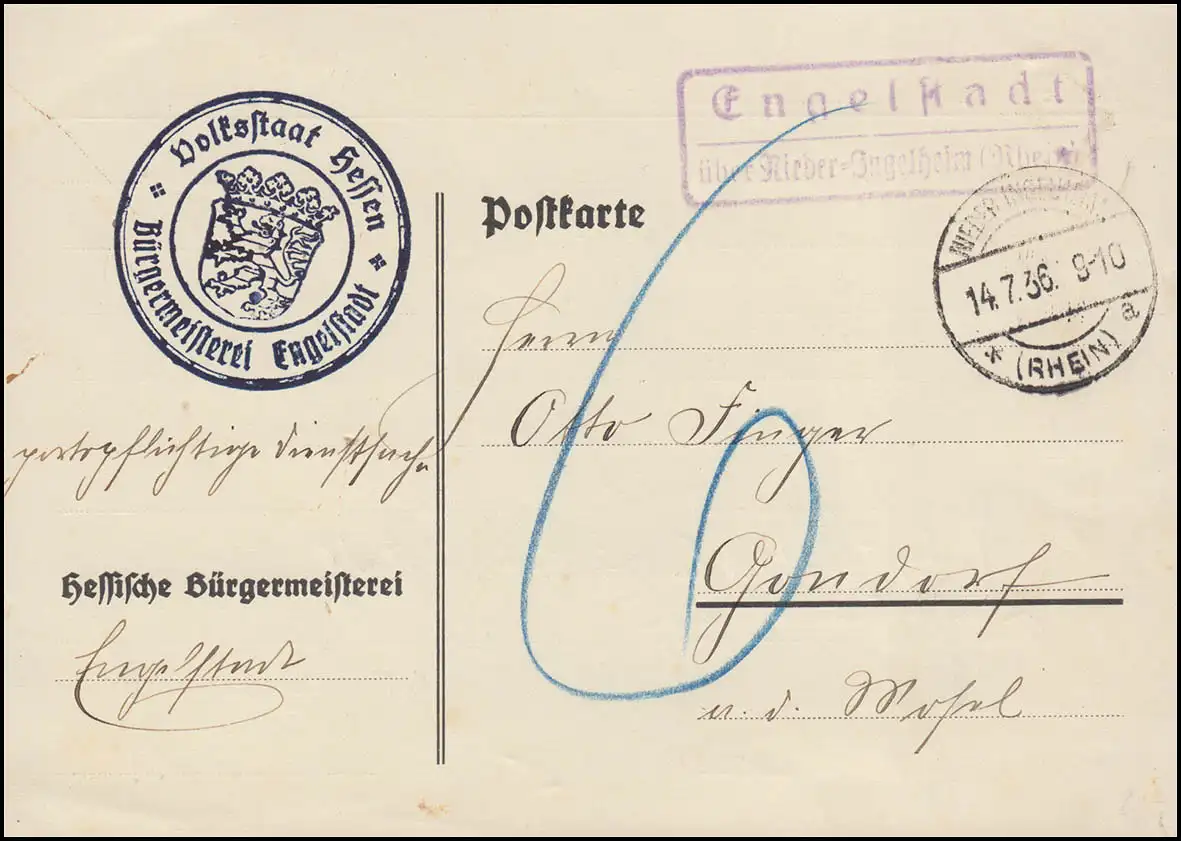 Volksstaat Hessen
Bürgermeisterei Engelstadt
portopflichtige Dienstsache
Hessische Bürgermeisterei
Engelstadt
Engelstadt
über Nieder-Ingelheim (Rhein)
NIEDER INGELHEIM
14.7.36. 8-10
* (RHEIN) a
Postkarte
Herrn
Otto Finger
Gondorf
a. d. Mosel
6